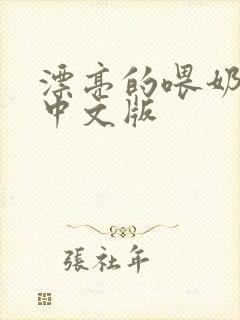 漂亮的喂奶
中文版
張社年